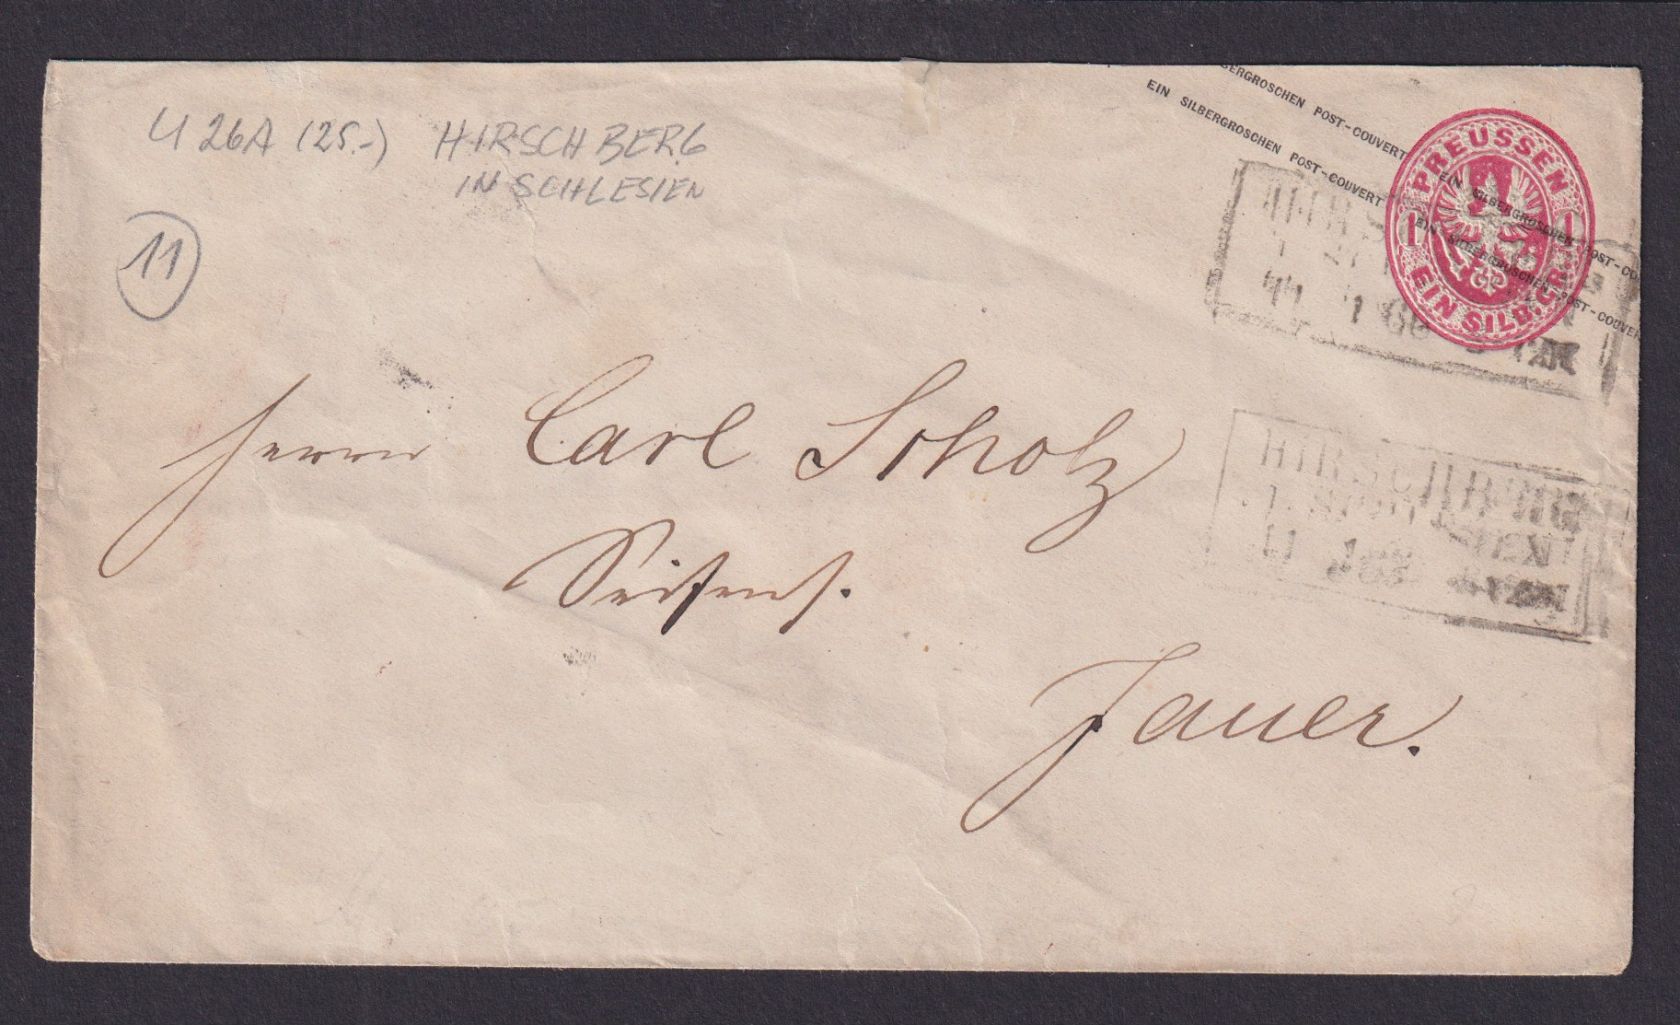 U 26A (25.-) HIRSCHBERG
IN SCHLESIEN
11
BERGROSCHEN POST-COUVERT EIN SILBERGROSCHEN POST-COU
EIN SILBERGROSCHEN POST-COUVERT EIN SILBERGROSCHEN POST-COUVER
PREUSSEN
1 1
EIN SILB. GR.
HIRS
HIRSCHBERG
Herrn Carl Scholz
Jauer.